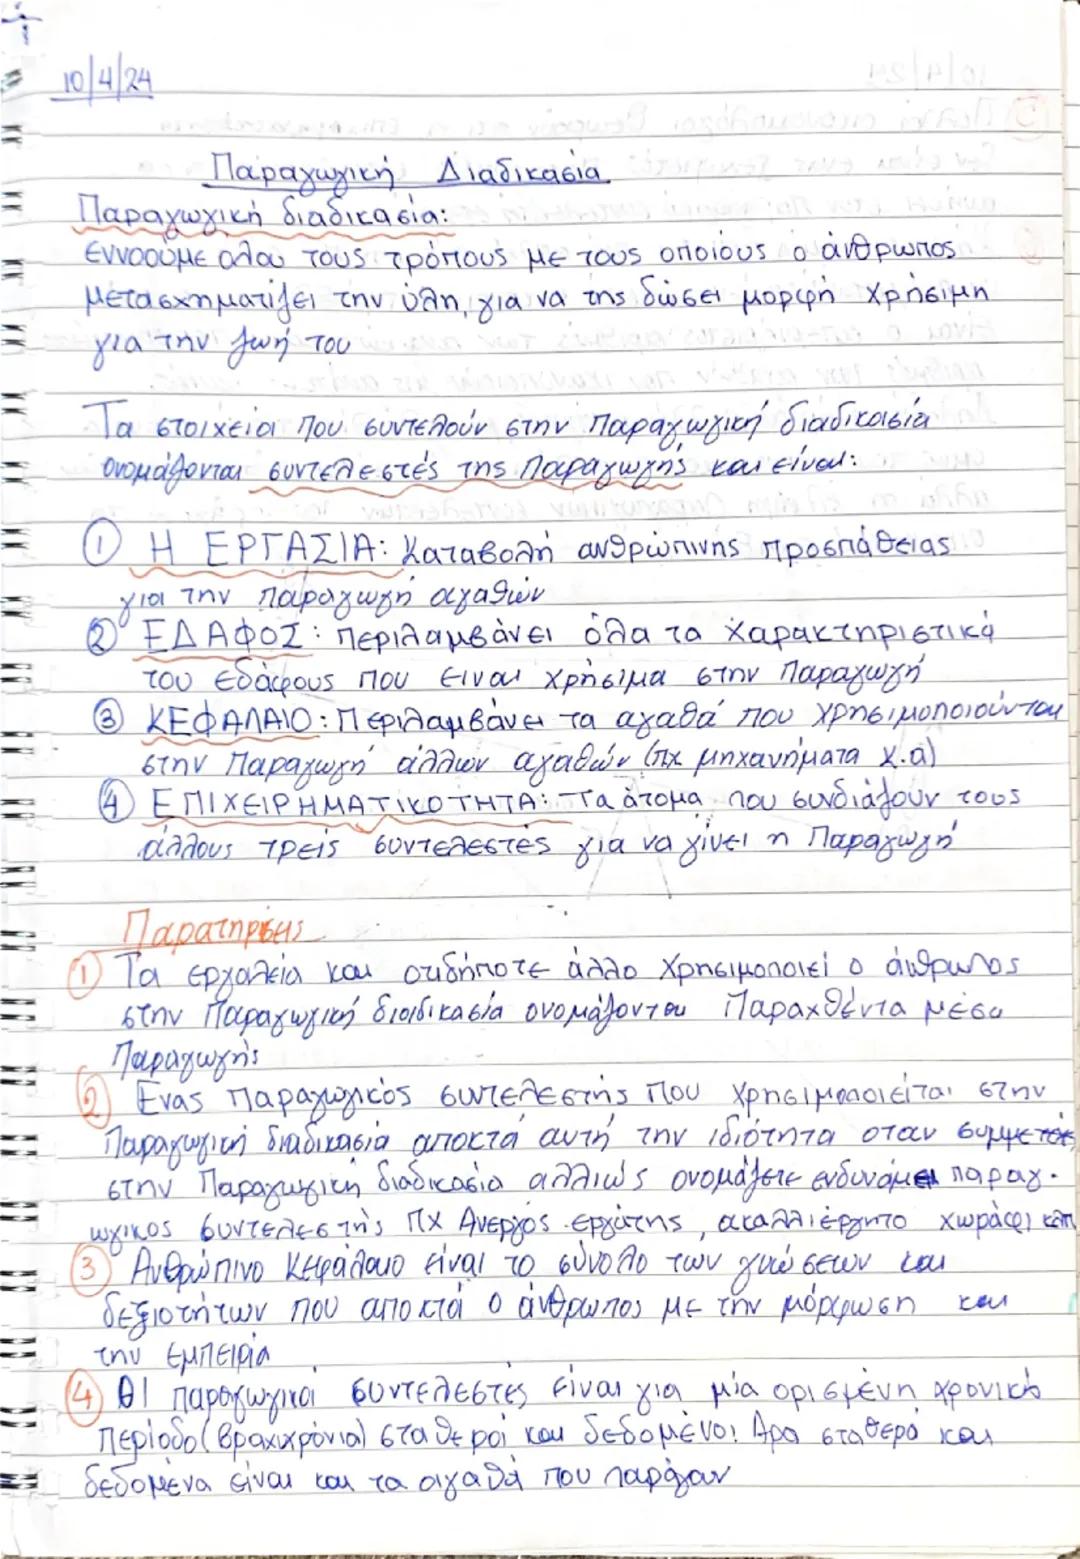 10/4/24
Παραγωγική Διαδικασία
Παραγωγική διαδικασία:
εννοούμε όλου τους τρόπους με τους οποίους ο άνθρωπος
μετασχηματίζει την ύλη, για να της δώσει μορφή χρήσιμη
για την ζωή του
Τα στοιχεία που συντελούν στην Παραγωγική διαδικασία
ονομάζονται συντελεστές της Παραγωγής και είναι:
① Η ΕΡΓΑΣΙΑ: Καταβολή ανθρώπινης προσπάθειας
για την παραγωγή αγαθών
② ΕΔΑΦΟΣ: Περιλαμβάνει όλα τα χαρακτηριστικά
του εδάφους που είναι χρήσιμα στην Παραγωγή
③ ΚΕΦΑΛΑΙΟ: Περιλαμβάνει τα αγαθά που χρησιμοποιούνται
στην Παραγωγή άλλων αγαθών (πχ μηχανήματα κ.α)
④ ΕΠΙΧΕΙΡΗΜΑΤΙΚΟΤΗΤΑ: Τα άτομα που συνδιάζουν τους
άλλους τρείς συντελεστές για να γίνει η Παραγωγή
Παρατηρήσεις
① Τα εργαλεία και οτιδήποτε άλλο χρησιμοποιεί ο άνθρωπος
στην Παραγωγική διαδικασία ονομάζονται Παραχθέντα μέσα
Παραγωγής
② Ένας παραγωγικός συντελεστής που χρησιμοποιείται στην
Παραγωγική διαδικασία αποκτά αυτή την ιδιότητα όταν συμμετέχει
στην Παραγωγική διαδικασία αλλιώς ονομάζετε ενδυνάμει παραγ-
ωγικος συντελεστής πχ Άνεργος εργάτης, ακαλλιέργητο χωράφι κτπ
③ Ανθρώπινο Κεφάλαιο είναι το σύνολο των γνώσεων και
δεξιοτήτων που αποκτά ο άνθρωπος με την μόρφωση και
την εμπειρία
④ ΟΙ παραγωγικοί συντελεστές είναι για μία ορισμένη χρονικό
περίοδο (βραχιχρόνια) σταθεροί και δεδομένοι Άρα σταθερά και
δεδομένα είναι και τα αγαθά που παράγαν